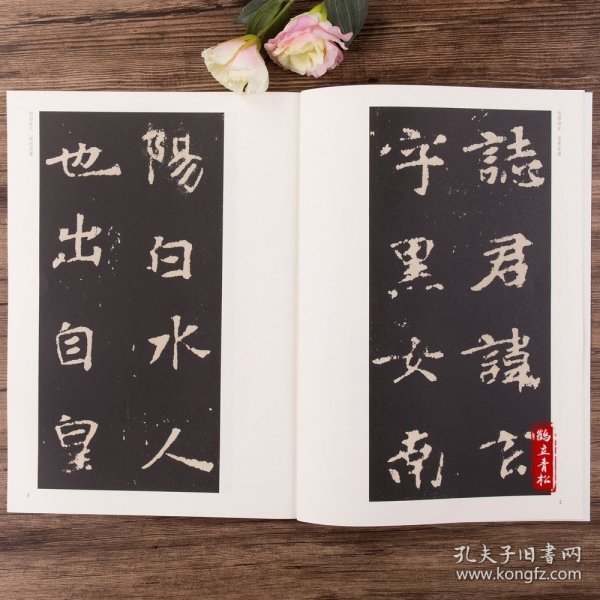 誌君諱玄
字黑女南
陽白水人
也出自皇
鶴立青松
孔夫子旧書网
www.kongfz.com